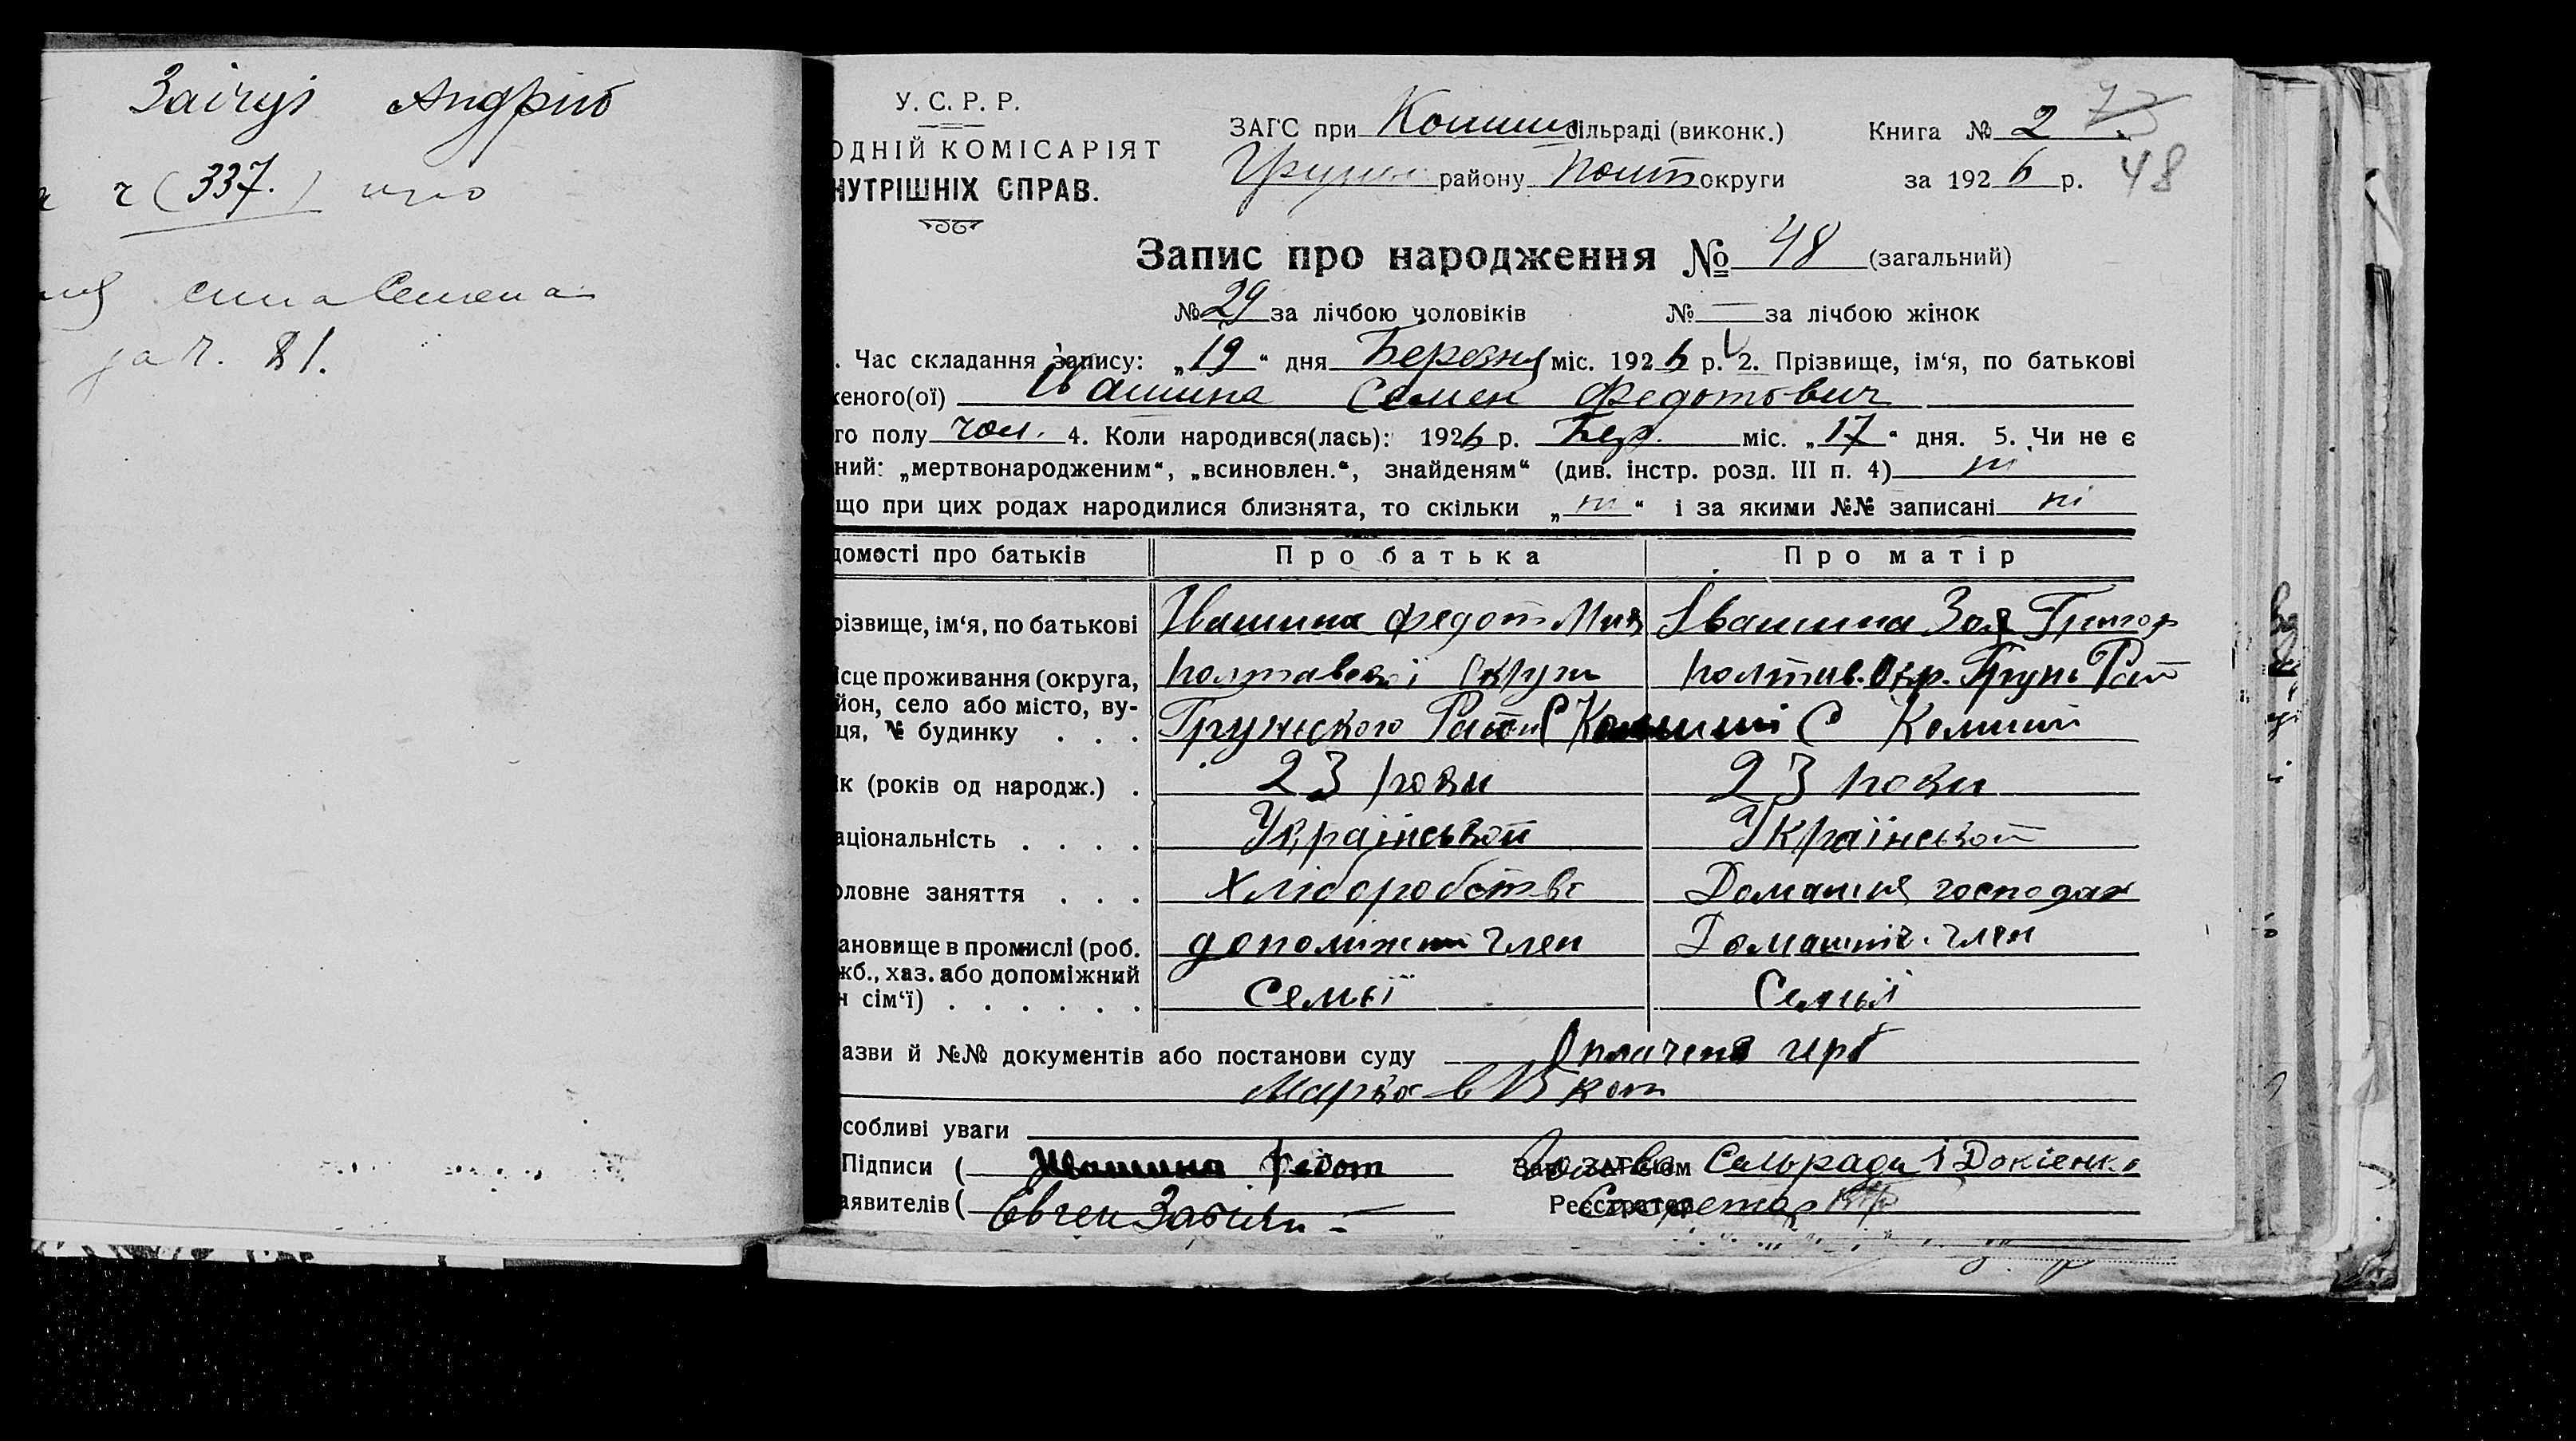 Андрій
(337.)
сина Семена
за ч. 21.
У. С. Р. Р.
ОДНІЙ КОМІСАРІЯТ
НУТРІШНІХ СПРАВ.
ЗАГС при сільраді (виконк.) Книга № 2 73
району Полт округи за 192 6 р. 48
Запис про народження № 48 (загальний)
№ 29 за лічбою чоловіків № — за лічбою жінок
. Час складання запису: „ 19 “ дня Березня міс. 192 6 р. 2. Прізвище, ім‘я, по батькові
женого(ої) Івашина Семен Федотович
го полу чол. 4. Коли народився(лась): 192 6 р. Бер. міс. „ 17 “ дня. 5. Чи не є
ний: „мертвонародженим“, „всиновлен.“, знайденям“ (див. інстр. розд. III п. 4) ні
що при цих родах народилися близнята, то скільки „ ні “ і за якими №№ записані ні
домості про батьків Про батька Про матір
різвище, ім‘я, по батькові Івашина Федот Мик Івашина Зоя Григор
ісце проживання (округа, Полтавської Округи Полтав. Окр. Грунь Рай
йон, село або місто, ву-
ця, № будинку . . . Грунського Район С Комиші С Комиші
ік (років од народж.) . 23 роки 23 роки
аціональність . . . . Українській Українській
оловне заняття . . . Хліборобство Домашня господар
ановище в промислі (роб. допоміжний член Домашніч. член
жб., хаз. або допоміжний
н сім‘ї) . . . . . . Семьї Семьї
азви й №№ документів або постанови суду Оплачено герб
Марка в 15 коп
собливі уваги
Підписи ( Ивашина Федот Зав. ЗАГС‘ом Голова Сельради Докіенко
аявителів ( Євген Реєстратор Секретар